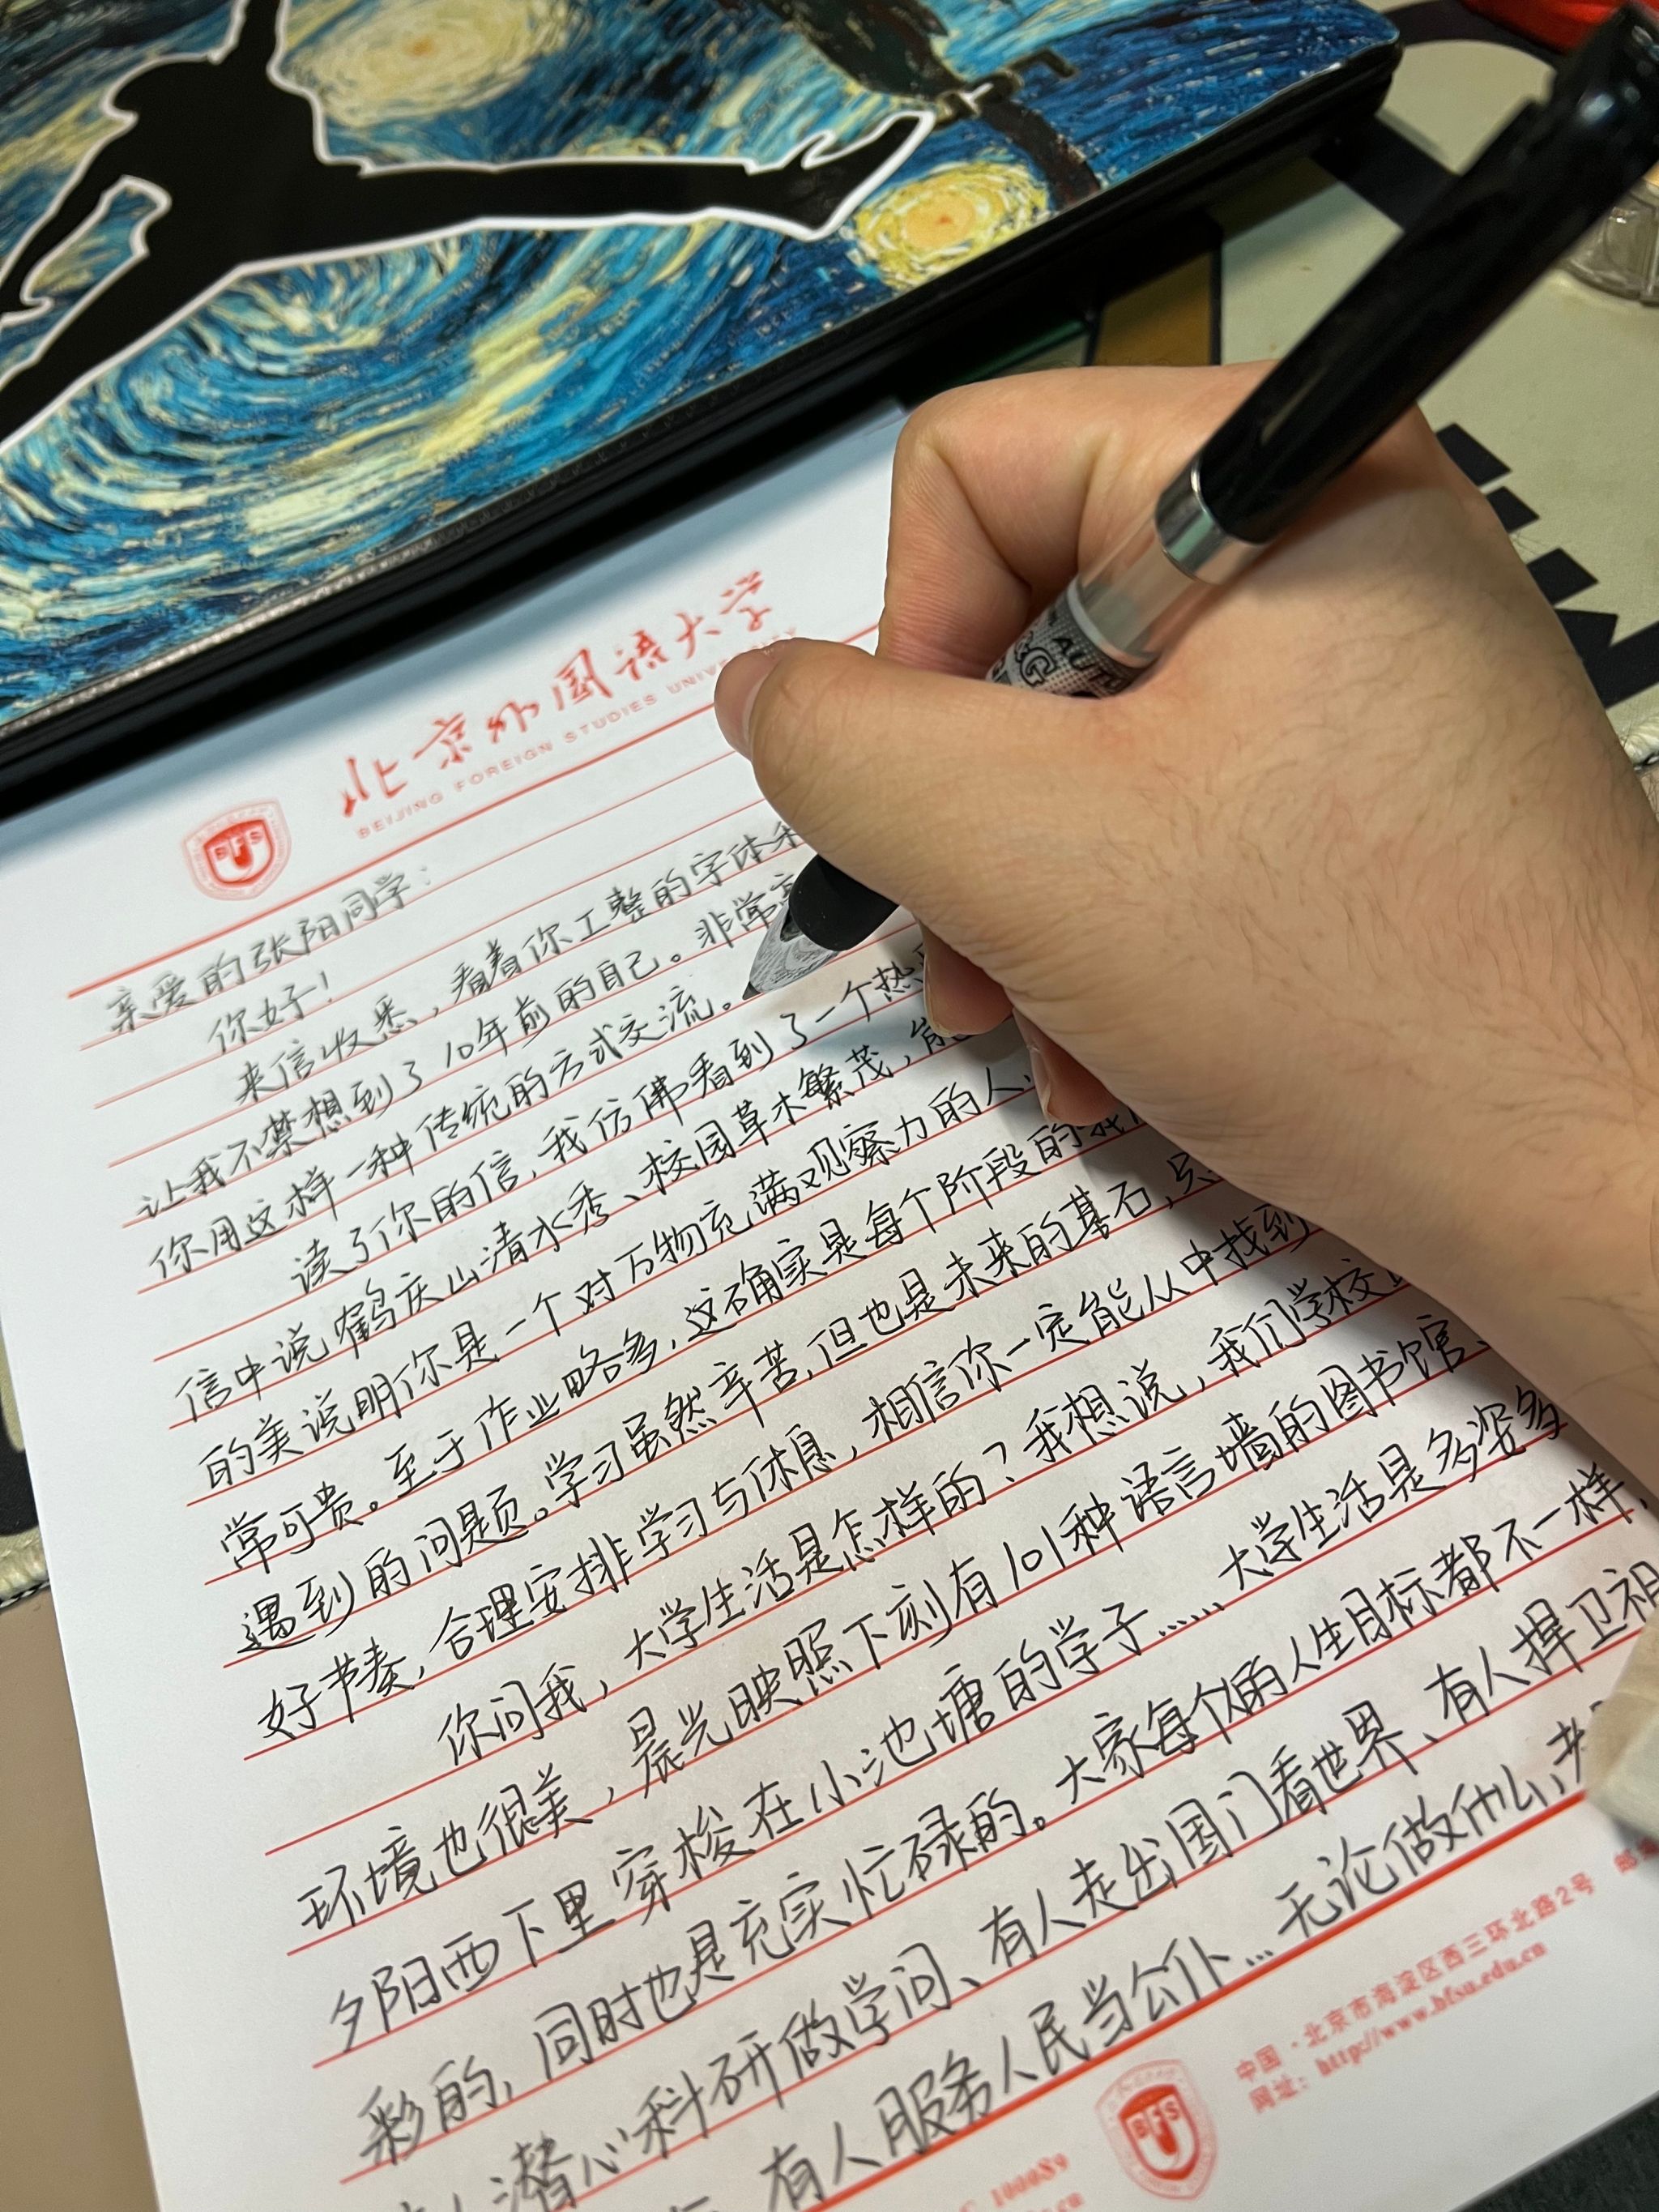 北京外国语大学
BEIJING FOREIGN STUDIES UNIVERSITY
BFS
亲爱的张阳同学：
你好！
来信收悉，看着你工整的字体和
让我不禁想到了10年前的自己。非常
你用这样一种传统的方式交流。
读了你的信，我仿佛看到了一个热
信中说鹤庆山清水秀、校园草木繁茂，能
的美说明你是一个对万物充满观察力的人，
常可贵。至于作业略多，这确实是每个阶段的我们
遇到的问题。学习虽然辛苦，但也是未来的基石，只
好节奏，合理安排学习与休息，相信你一定能从中找到
你问我，大学生活是怎样的？我想说，我们学校
环境也很美，晨光映照下刻有101种语言墙的图书馆、
夕阳西下里穿梭在小池塘的学子……大学生活是多姿多
彩的，同时也是充实忙碌的。大家每个人的人生目标都不一样，
人潜心科研做学问、有人走出国门看世界、有人捍卫祖
有人服务人民当公仆…无论做什么，
中国·北京市海淀区西三环北路2号
网址：http://www.bfsu.edu.cn
100089
BFS